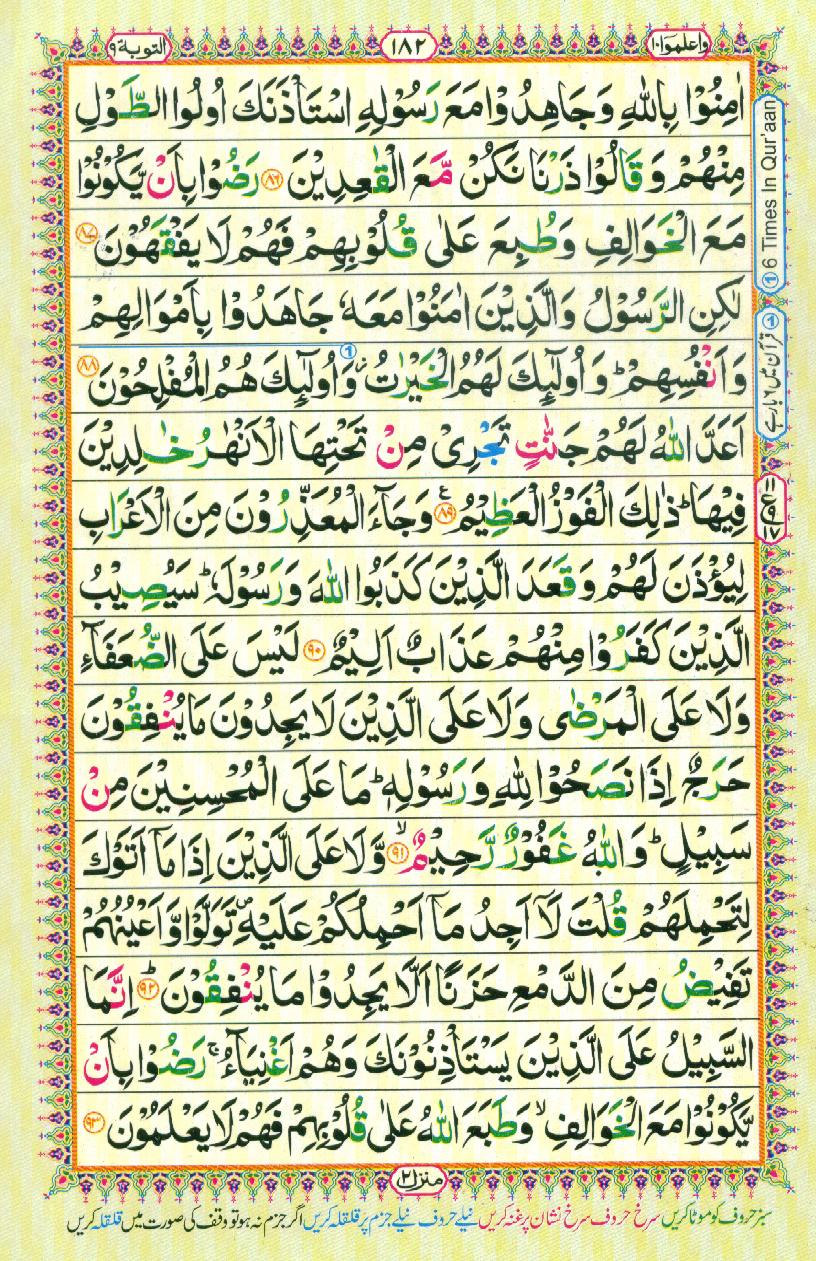 واعلموا۱۰ ۱۸۲ التوبة۹
اٰمِنُوْا بِاللّٰهِ وَجَاهِدُوْا مَعَ رَسُوْلِهِ اسْتَاْذَنَكَ اُولُوا الطَّوْلِ
مِنْهُمْ وَقَالُوْا ذَرْنَا نَكُنْ مَّعَ الْقٰعِدِيْنَ ۸۶ رَضُوْا بِاَنْ يَّكُوْنُوْا
مَعَ الْخَوَالِفِ وَطُبِعَ عَلٰى قُلُوْبِهِمْ فَهُمْ لَا يَفْقَهُوْنَ ۸۷
لٰكِنِ الرَّسُوْلُ وَالَّذِيْنَ اٰمَنُوْا مَعَهٗ جَاهَدُوْا بِاَمْوَالِهِمْ
وَاَنْفُسِهِمْ ؕ وَاُولٰٓئِكَ لَهُمُ الْخَيْرٰتُ ؗ وَاُولٰٓئِكَ هُمُ الْمُفْلِحُوْنَ ۸۸
اَعَدَّ اللّٰهُ لَهُمْ جَنّٰتٍ تَجْرِىْ مِنْ تَحْتِهَا الْاَنْهٰرُ خٰلِدِيْنَ
فِيْهَا ؕ ذٰلِكَ الْفَوْزُ الْعَظِيْمُ ۸۹ ع وَجَآءَ الْمُعَذِّرُوْنَ مِنَ الْاَعْرَابِ
لِيُؤْذَنَ لَهُمْ وَقَعَدَ الَّذِيْنَ كَذَبُوا اللّٰهَ وَرَسُوْلَهٗ ؕ سَيُصِيْبُ
الَّذِيْنَ كَفَرُوْا مِنْهُمْ عَذَابٌ اَلِيْمٌ ۹۰ لَيْسَ عَلَى الضُّعَفَآءِ
وَلَا عَلَى الْمَرْضٰى وَلَا عَلَى الَّذِيْنَ لَا يَجِدُوْنَ مَا يُنْفِقُوْنَ
حَرَجٌ اِذَا نَصَحُوْا لِلّٰهِ وَرَسُوْلِهٖ ؕ مَا عَلَى الْمُحْسِنِيْنَ مِنْ
سَبِيْلٍ ؕ وَاللّٰهُ غَفُوْرٌ رَّحِيْمٌ ۙ ۹۱ وَّلَا عَلَى الَّذِيْنَ اِذَا مَآ اَتَوْكَ
لِتَحْمِلَهُمْ قُلْتَ لَآ اَجِدُ مَآ اَحْمِلُكُمْ عَلَيْهِ ۪ تَوَلَّوْا وَّاَعْيُنُهُمْ
تَفِيْضُ مِنَ الدَّمْعِ حَزَنًا اَلَّا يَجِدُوْا مَا يُنْفِقُوْنَ ؕ ۹۲ اِنَّمَا
السَّبِيْلُ عَلَى الَّذِيْنَ يَسْتَاْذِنُوْنَكَ وَهُمْ اَغْنِيَآءُ ۚ رَضُوْا بِاَنْ
يَّكُوْنُوْا مَعَ الْخَوَالِفِ ۙ وَطَبَعَ اللّٰهُ عَلٰى قُلُوْبِهِمْ فَهُمْ لَا يَعْلَمُوْنَ ۹۳
① 6 Tiimes In Qur'aan
① قرآن میں ۶ بار ہے
منزل۲
سبز حروف کو موٹا کریں سرخ حروف سرخ نشان پر غنہ کریں نیلے حروف نیلے جزم پر قلقلہ کریں اگر جزم نہ ہو تو وقف کی صورت میں قلقلہ کریں